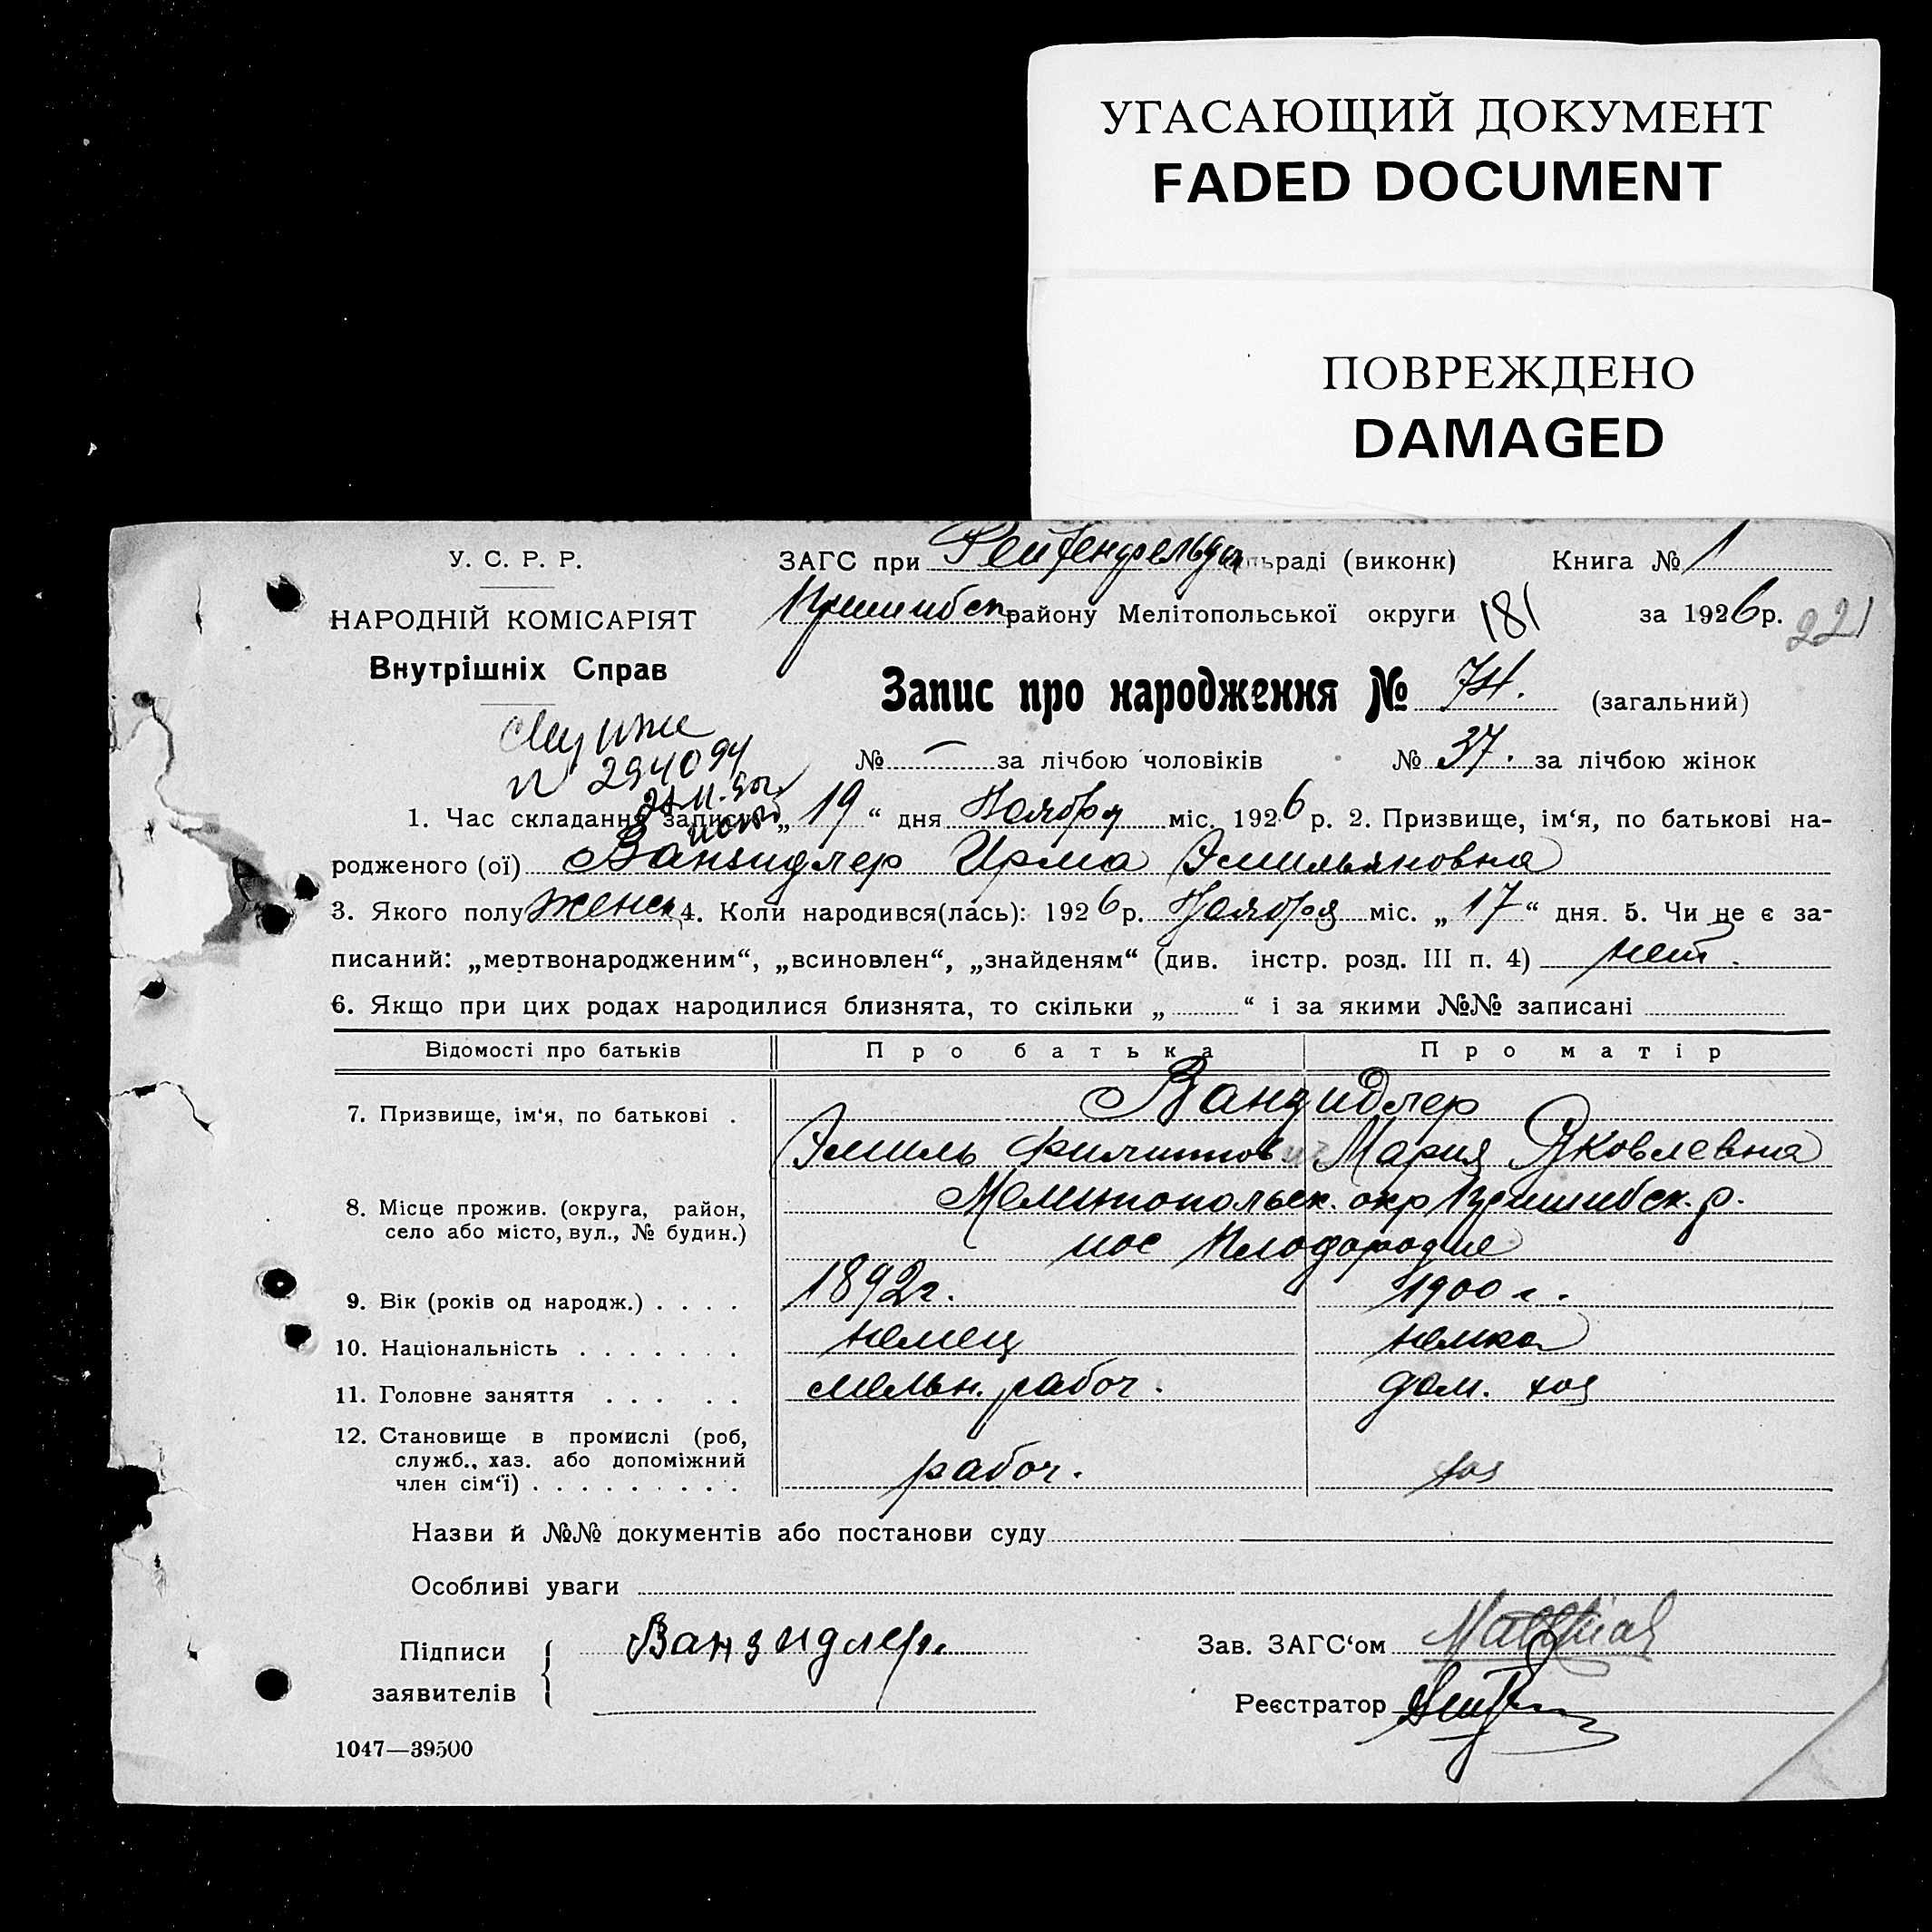 УГАСАЮЩИЙ ДОКУМЕНТ
FADED DOCUMENT
ПОВРЕЖДЕНО
DAMAGED
У. С. Р. Р.
НАРОДНІЙ КОМІСАРІЯТ
Внутрішніх Справ
ЗАГС при Рейхенфельдск льраді (виконк) Книга № 1
Пришибск району Мелітопольської округи 181 за 1926 р. 221
Запис про народження № 74. (загальний)
№ — за лічбою чоловіків № 37. за лічбою жінок
№ 294094
1. Час складання запису „19“ дня Ноября міс. 1926 р. 2. Призвище, ім‘я, по батькові на-
родженого (ої) Ванзидлер Ирма Эмильяновна
3. Якого полу женск 4. Коли народився(лась): 1926 р. Ноября міс. „17“ дня. 5. Чи не є за-
писаний: „мертвонародженим“, „всиновлен“, „знайденям“ (див. інстр. розд. III п. 4) нет.
6. Якщо при цих родах народилися близнята, то скільки „ “ і за якими №№ записані
Відомості про батьків Про батька Про матір
7. Призвище, ім‘я, по батькові . Ванзидлер
Эмиль Филиппович Мария Яковлевна
8. Місце прожив. (округа, район, село або місто, вул., № будин.) Мелитопольск. окр Пришибск. р.
пос Плодородие
9. Вік (років од народж.) . . . . 1892г. 1900 г.
10. Національність . . . . . . . немец немка
11. Головне заняття . . . . . мельн. рабоч. дом. хоз
12. Становище в промислі (роб, служб., хаз. або допоміжний член сім‘ї) . . . . . . . . . рабоч. хоз
Назви й №№ документів або постанови суду
Особливі уваги
Підписи заявителів Ванзидлер. Зав. ЗАГС‘ом Matthias
Реєстратор
1047—39500